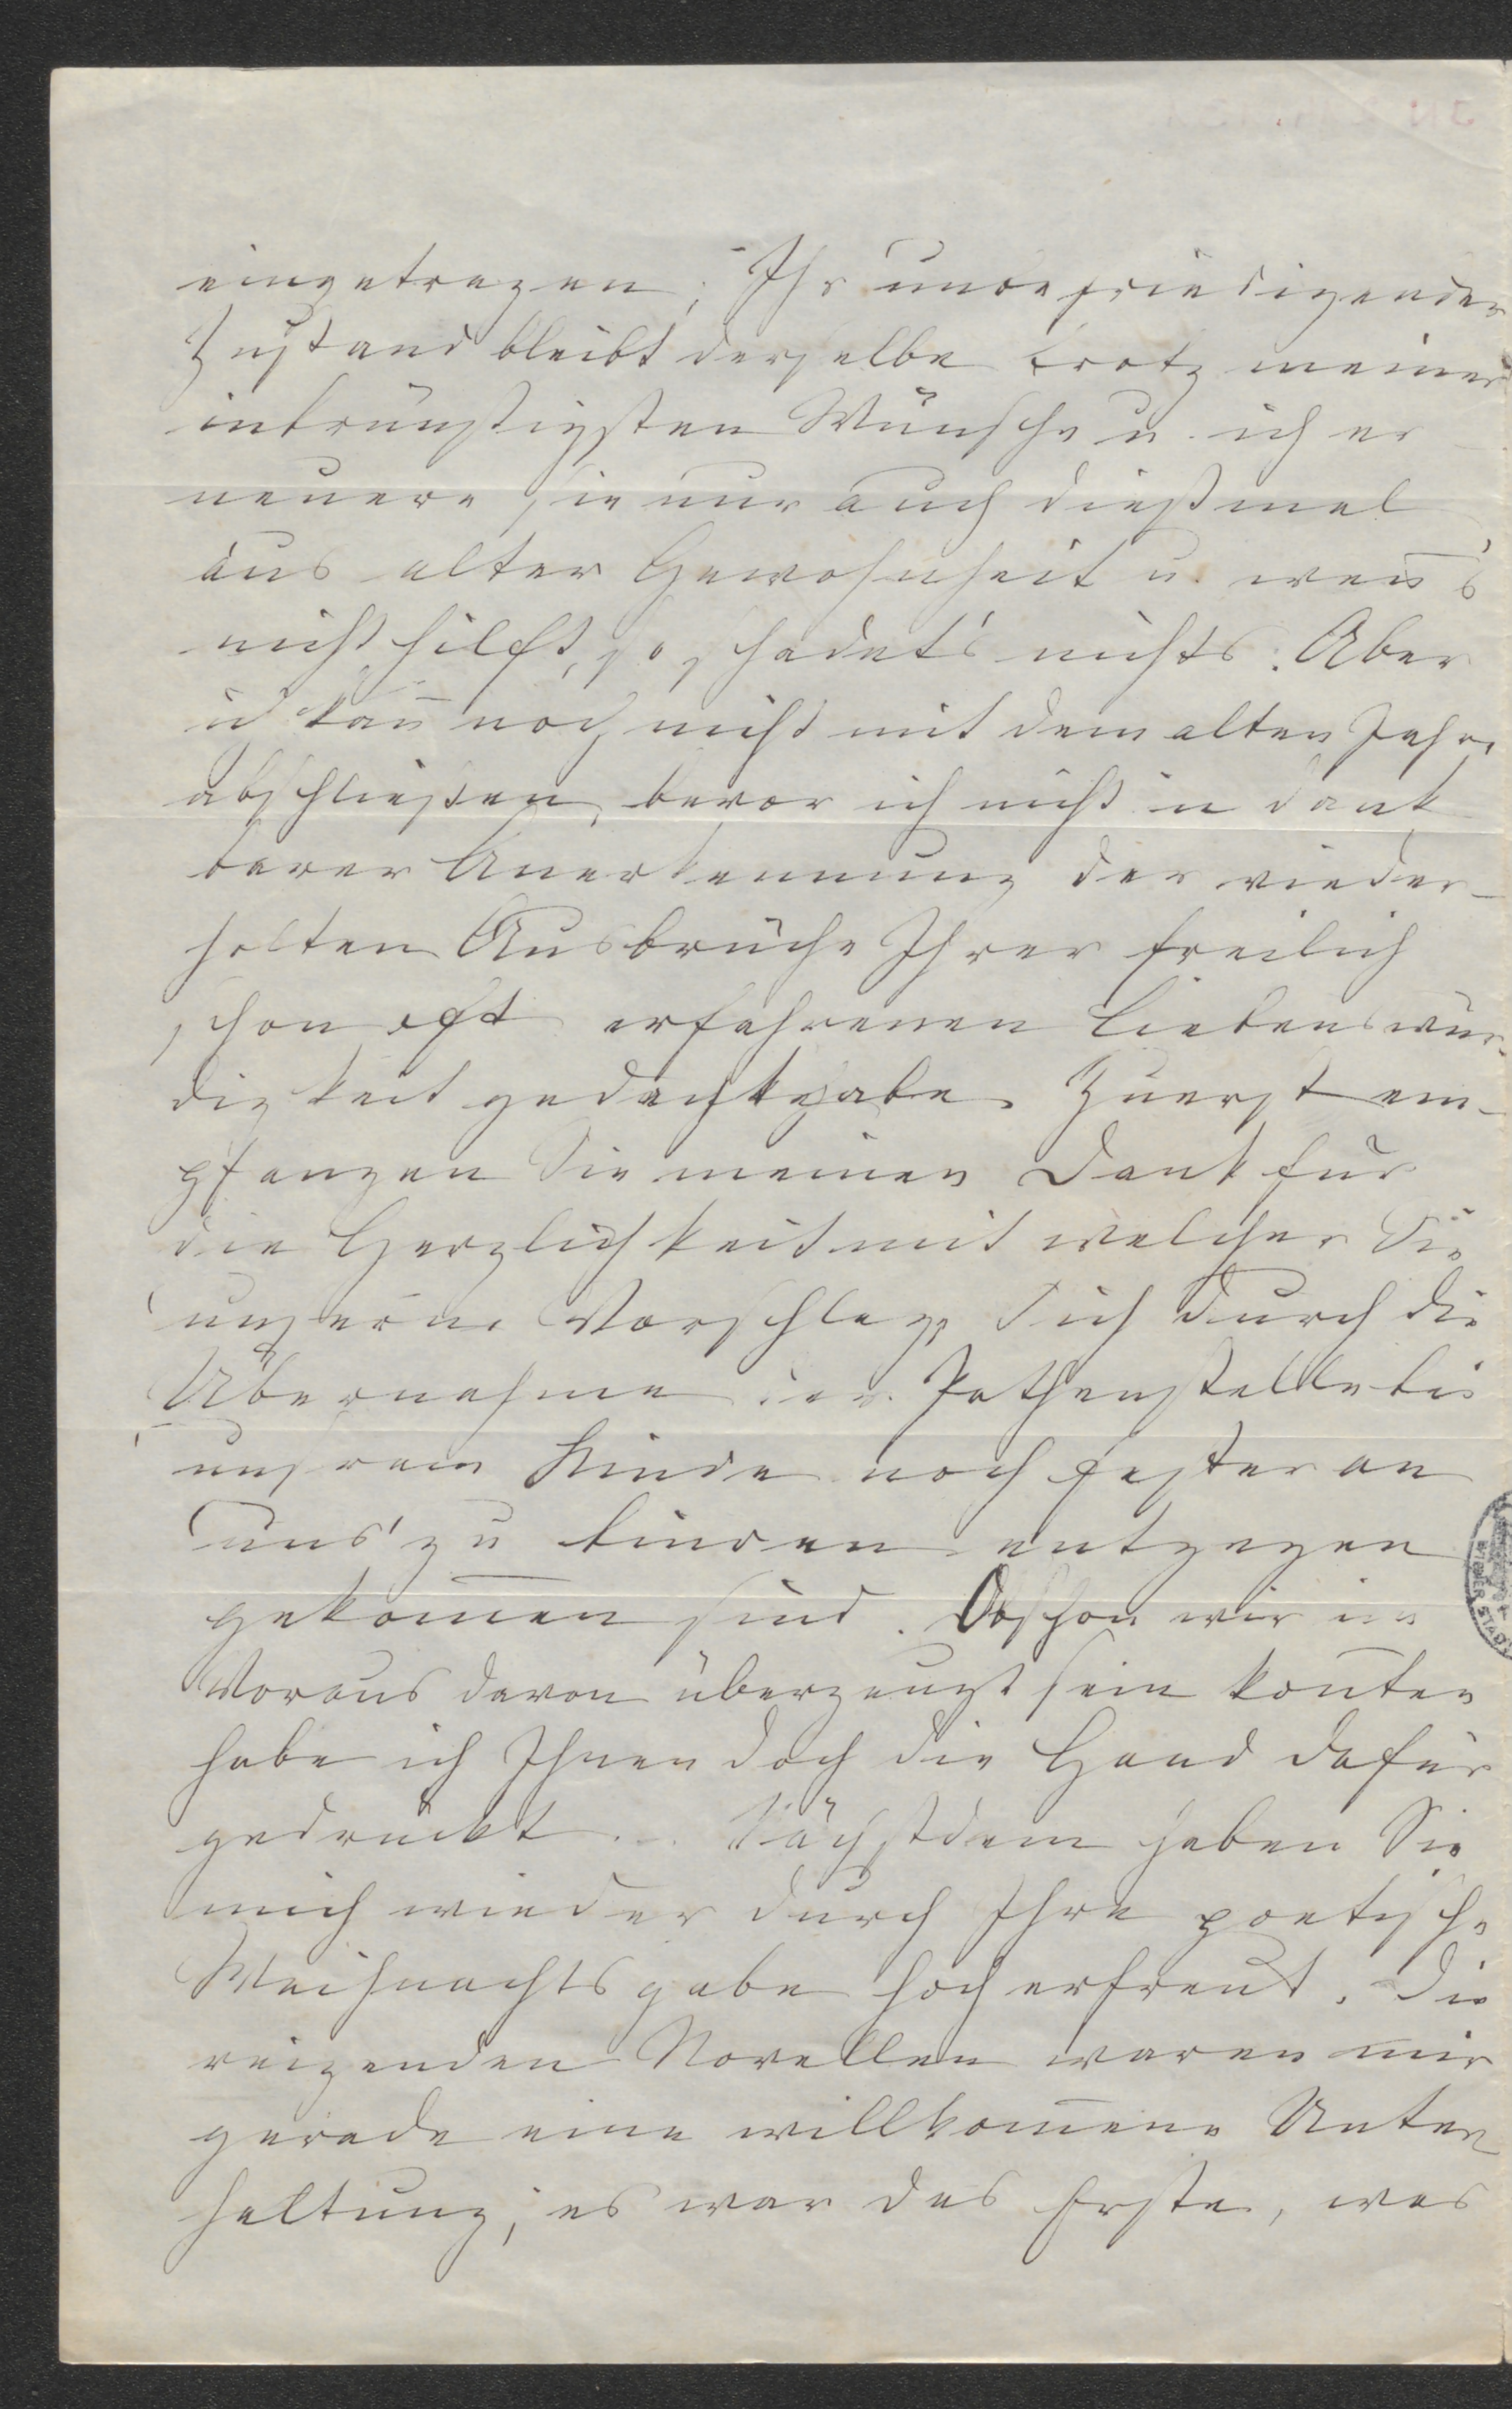 eingetragen; Ihr unbefriedigender
Zustand bleibt derselbe trotz meiner
inbrünstigsten Wünsche u. ich er-
neuere sie nur auch dießmal
aus alter Gewohnheit u. wen̄'s
nicht hilft, so schadet's nichts. Aber
ich kan̄ noch nicht mit dem alten Jahre
abschließen, bevor ich nicht in dank
barer Anerkennung der wieder-
holten Ausbrüche Ihrer freilich
schon oft erfahrenen Liebenswür-
digkeit gedacht habe. Zuerst em-
pfangen Sie meinen Dank für
die Herzlichkeit mit welcher Sie
unserm Vorschlage Sich durch die
Übernahme der Pathenstelle bei
unsrem Kinde noch fester an
uns zu binden entgegen
gekom̄en sind. Obschon wir im
Voraus davon überzeugt sein kon̄ten
habe ich Ihnen doch die Hand dafür
gedrückt. Nächstdem haben Sie
mich wieder durch Ihre poetische
Weihnachtsgabe hoch erfreut. Die
reizenden Novellen waren mir
gerade eine willkom̄ene Unter
haltung; es war das Erste, was
WIENER STADT